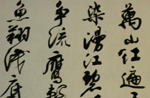 萬山紅遍
染漫江碧
爭流鷹擊
魚翔淺底